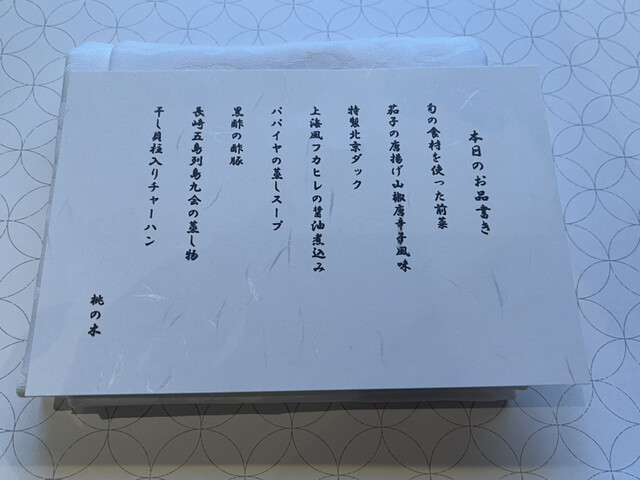 本日のお品書き
旬の食材を使った前菜
茄子の唐揚げ山椒唐辛子風味
特製北京ダック
上海風フカヒレの醤油煮込み
パパイヤの蒸しスープ
黒酢の酢豚
長崎五島列島九会の蒸し物
干し貝柱入りチャーハン
桃の木